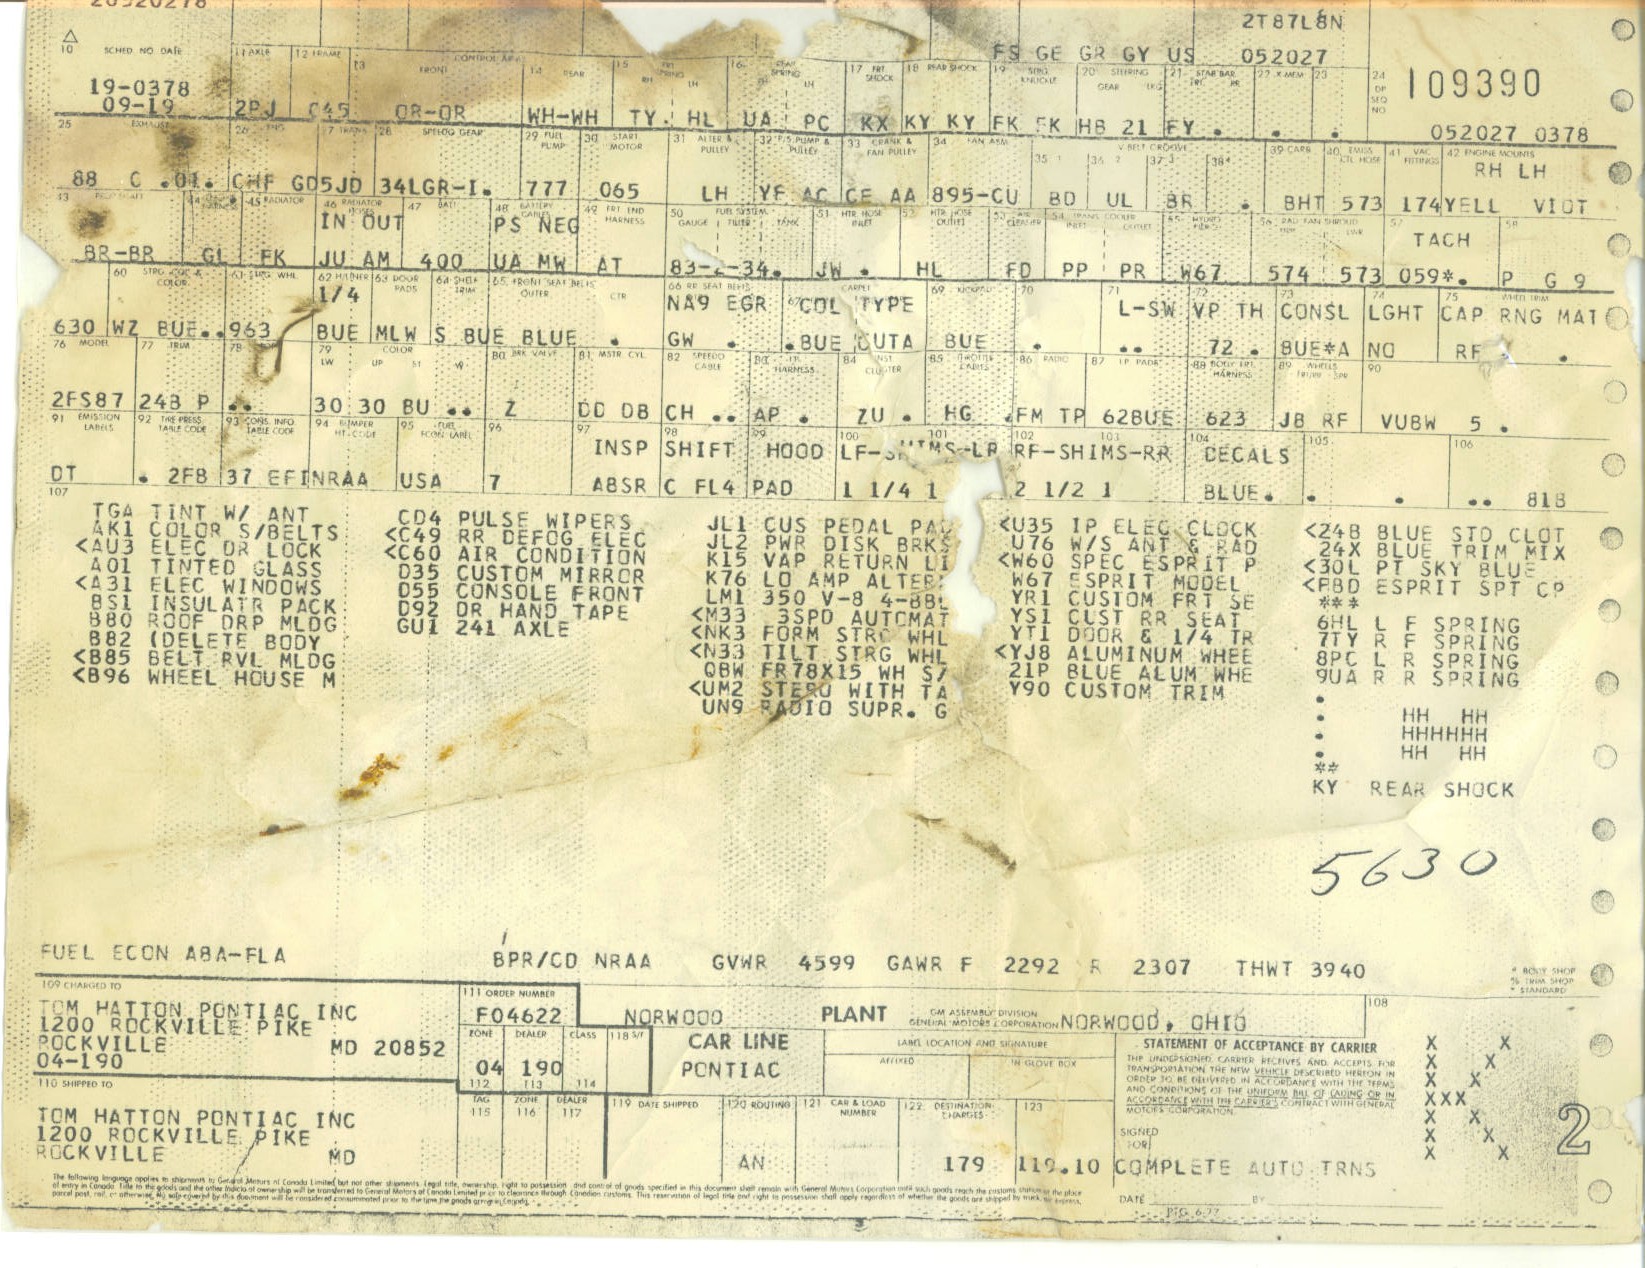 20520278
2T87L8N
FS GE GR GY US 052027
10 SCHED NO DATE 11 AXLE 12 FRAME 13 FRONT CONTROL ARM 14 REAR 15 16 17 FRT SHOCK 18 REAR SHOCK 19 STRG KNUCKLE 20 STEERING GEAR LKG 21 STAB BAR FRT RR 22 X-MEM 23 24 DP SEQ NO 109390
19-0378
09-19 2PJ C45 OR-OR WH-WH TY. HL UA PC KX KY KY FK FK HB 21 FY . . .
052027 0378
25 EXHAUST 26 ENG 27 TRANS 28 SPEEDO GEAR 29 FUEL PUMP 30 START MOTOR 31 ALTER & PULLEY 32 P/S PUMP & PULLEY 33 CRANK & FAN PULLEY 34 FAN ASM V BELT GROOVE 35 1 36 2 37 3 38 4 39 CARB 40 EMISS CTL HOSE 41 VAC FITTINGS 42 ENGINE MOUNTS
RH LH
88 C .01. CHF GD5JD 34LGR-I. 777 065 LH YF AC CE AA 895-CU BD UL BR . BHT 573 174YELL VIOT
43 PROP SHAFT 45 RADIATOR 46 RADIATOR HOSES 47 BATT 48 BATTERY CABLES 49 FRT END HARNESS 50 FUEL SYSTEM GAUGE FILTER TANK 51 HTR HOSE INLET 52 HTR HOSE OUTLET 53 AIR CLEANER 54 TRANS COOLER INLET OUTLET 55 56 RAD FAN SHROUD LWR 57 58
IN OUT PS NEG TACH
BR-BR GL FK JU AM 400 UA MW AT 83-2-34. JW . HL FD PP PR W67 574 573 059*. P G 9
60 STRG COL & COLOR 61 STRG WHL 62 63 DOOR PADS 64 SHELF TRIM 65 FRONT SEAT BELTS OUTER CTR 66 RR SEAT BELTS 67 CARPET 69 KICKPAD 70 71 72 73 74 75 WHEEL TRIM
1/4 NA9 EGR COL TYPE L-SW VP TH CONSL LGHT CAP RNG MAT
630 WZ BUE..963 BUE MLW S BUE BLUE . GW . .BUE CUTA BUE . .. 72 . BUE*A NO RF .
76 MODEL 77 TRIM 78 79 COLOR LW UP ST W 80 BRK VALVE 81 MSTR CYL 82 SPEEDO CABLE 83 I.P. HARNESS 84 INST CLUSTER 85 THROTTLE CABLES 86 RADIO 87 I.P. PADS 88 BODY FRT HARNESS 89 WHEELS FRT/RR SPR 90
2FS87 24B P .. 30 30 BU .. Z DD DB CH .. AP . ZU . HG .FM TP 62BUE 623 JB RF VUBW 5 .
91 EMISSION LABELS 92 TIRE PRESS. TABLE CODE 93 CONS. INFO TABLE CODE 94 BUMPER HT-CODE 95 FUEL ECON LABEL 96 97 98 99 100 101 102 103 104 105 106
INSP SHIFT HOOD LF-SHIMS-LR RF-SHIMS-RR DECALS
DT . 2FB 37 EFINRAA USA 7 ABSR C FL4 PAD 1 1/4 1 2 1/2 1 BLUE. . . .. 81B
107
TGA TINT W/ ANT
AK1 COLOR S/BELTS
<AU3 ELEC DR LOCK
A01 TINTED GLASS
<A31 ELEC WINDOWS
BS1 INSULATR PACK
B80 ROOF DRP MLDG
B82 (DELETE BODY
<B85 BELT RVL MLDG
<B96 WHEEL HOUSE M
CD4 PULSE WIPERS
<C49 RR DEFOG ELEC
<C60 AIR CONDITION
D35 CUSTOM MIRROR
D55 CONSOLE FRONT
D92 DR HAND TAPE
GU1 241 AXLE
JL1 CUS PEDAL PAD
JL2 PWR DISK BRKS
K15 VAP RETURN LI
K76 LO AMP ALTER
LM1 350 V-8 4-BBL
<M33 3SPD AUTOMAT
<NK3 FORM STRG WHL
<N33 TILT STRG WHL
QBW FR78X15 WH S/
<UM2 STERO WITH TA
UN9 RADIO SUPR. G
<U35 IP ELEC CLOCK
U76 W/S ANT & RAD
<W60 SPEC ESPRIT P
W67 ESPRIT MODEL
YR1 CUSTOM FRT SE
YS1 CUST RR SEAT
YT1 DOOR & 1/4 TR
<YJ8 ALUMINUM WHEE
21P BLUE ALUM WHE
Y90 CUSTOM TRIM
<24B BLUE STD CLOT
24X BLUE TRIM MIX
<30L PT SKY BLUE
<FBD ESPRIT SPT CP
***
6HL L F SPRING
7TY R F SPRING
8PC L R SPRING
9UA R R SPRING
.
. HH HH
. HHHHHH
. HH HH
**
KY REAR SHOCK
5630
FUEL ECON A8A-FLA BPR/CD NRAA GVWR 4599 GAWR F 2292 R 2307 THWT 3940
* BODY SHOP
% TRIM SHOP
* STANDARD
109 CHARGED TO
TOM HATTON PONTIAC INC
1200 ROCKVILLE PIKE
ROCKVILLE MD 20852
04-190
111 ORDER NUMBER
F04622
ZONE DEALER CLASS 118 S/T
04 190
112 113 114
NORWOOD PLANT GM ASSEMBLY DIVISION GENERAL MOTORS CORPORATION NORWOOD, OHIO
108
CAR LINE
PONTIAC
LABEL LOCATION AND SIGNATURE
AFFIXED IN GLOVE BOX
STATEMENT OF ACCEPTANCE BY CARRIER
THE UNDERSIGNED CARRIER RECEIVES AND ACCEPTS FOR
TRANSPORTATION THE NEW VEHICLE DESCRIBED HEREON IN
ORDER TO BE DELIVERED IN ACCORDANCE WITH THE TERMS
AND CONDITIONS OF THE UNIFORM BILL OF LADING OR IN
ACCORDANCE WITH THE CARRIER'S CONTRACT WITH GENERAL
MOTORS CORPORATION.
SIGNED
FOR
X X
X X
X X
XXX
X X
X X
X X
2
110 SHIPPED TO
TOM HATTON PONTIAC INC
1200 ROCKVILLE PIKE
ROCKVILLE MD
TAG ZONE DEALER
115 116 117
119 DATE SHIPPED 120 ROUTING 121 CAR & LOAD NUMBER 122 DESTINATION CHARGES 123
AN 179 119.10 COMPLETE AUTO TRNS
DATE BY
The following language applies to shipments to General Motors of Canada Limited but not other shipments. Legal title, ownership, right to possession and control of goods specified in this document shall remain with General Motors Corporation until such goods reach the customs station at the place
of entry in Canada. Title to the goods and the other indicia of ownership will be transferred to General Motors of Canada Limited prior to clearance through Canadian customs. This reservation of legal title and right to possession shall apply regardless of whether the goods are shipped by truck, air express,
parcel post, rail, or otherwise.